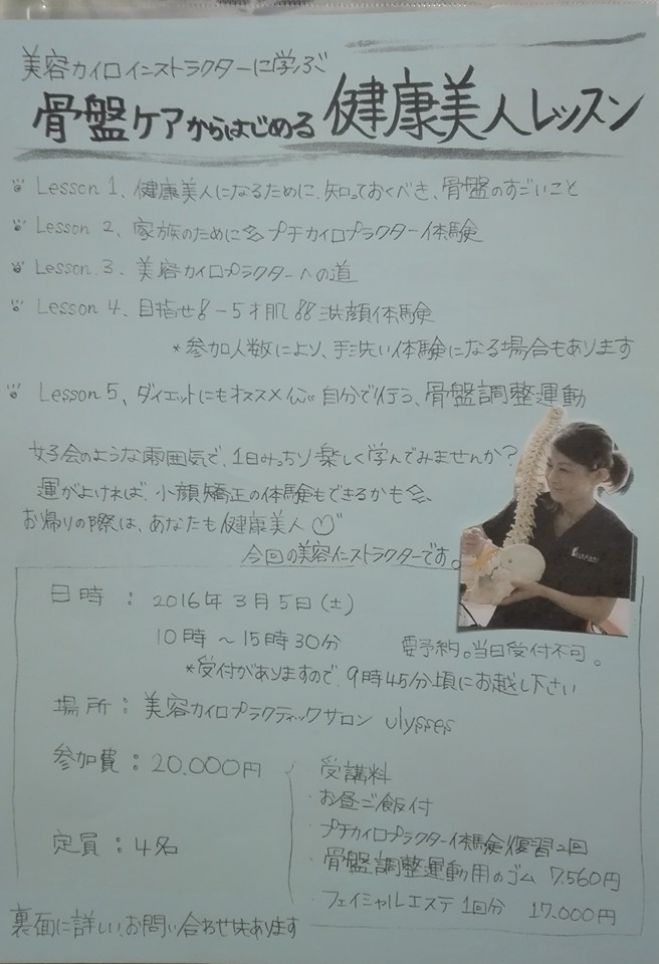 美容カイロインストラクターに学ぶ
骨盤ケアからはじめる 健康美人レッスン
Lesson 1、健康美人になるために、知っておくべき、骨盤のすごいこと
Lesson 2、家族のために プチカイロプラクター体験
Lesson 3、美容カイロプラクターへの道
Lesson 4、目指せ -5才肌 洗顔体験
*参加人数により、手洗い体験になる場合もあります
Lesson 5、ダイエットにもオススメ 自分で行う、骨盤調整運動
女子会のような雰囲気で、1日みっちり楽しく学んでみませんか?
運がよければ、小顔矯正の体験もできるかも
お帰りの際は、あなたも健康美人
今回の美容インストラクターです。
日時:2016年3月5日(土)
10時～15時30分 要予約。当日受付不可。
*受付がありますので、9時45分頃にお越し下さい
場所:美容カイロプラクティックサロン ulysses
参加費:20.000円
受講料
・お昼ご飯付
・プチカイロプラクター体験復習2回
・骨盤調整運動用のゴム 7.560円
・フェイシャルエステ1回分 17.000円
定員:4名
裏面に詳しいお問い合わせ先あります